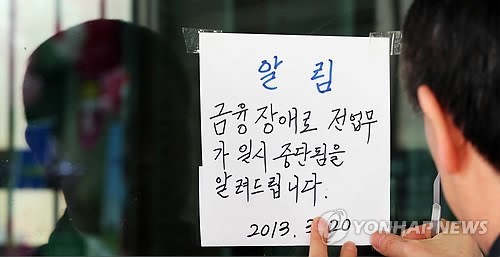 알림
금융장애로 전업무
가 일시 중단됨을
알려드립니다.
2013. 3. 20
YONHAPNEWS